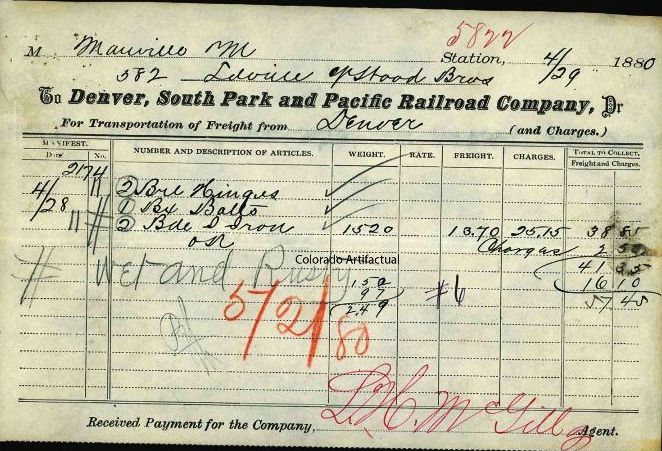 5822
M Manville M Station, 4/29 1880
582 c/o Stood Bros
To Denver, South Park and Pacific Railroad Company, Dr
For Transportation of Freight from Denver (and Charges.)
MANIFEST. NUMBER AND DESCRIPTION OF ARTICLES. WEIGHT. RATE. FREIGHT. CHARGES. TOTAL TO COLLECT.
Day No. Freight and Charges.
2174
4/28 " 2 Bdl Hinges
1 Bx Bolts
" 2 Bdl Iron 1520 13.70 25.15 38 85
OR Charges 2 50
Colorado Artifactual 41 35
# Wet and Rusty 150 16 10
97 #6 57 45
249
5/21/80
L. H. McGill
Received Payment for the Company, Agent.